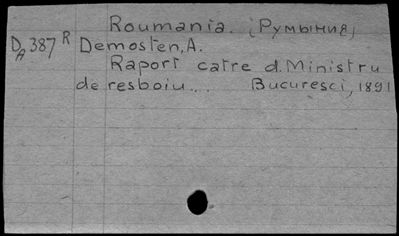 Roumania. (Румыния)
DA 387 R Demosten, A.
Raport catre d. Ministru
de resboiu... Bucuresci, 1891